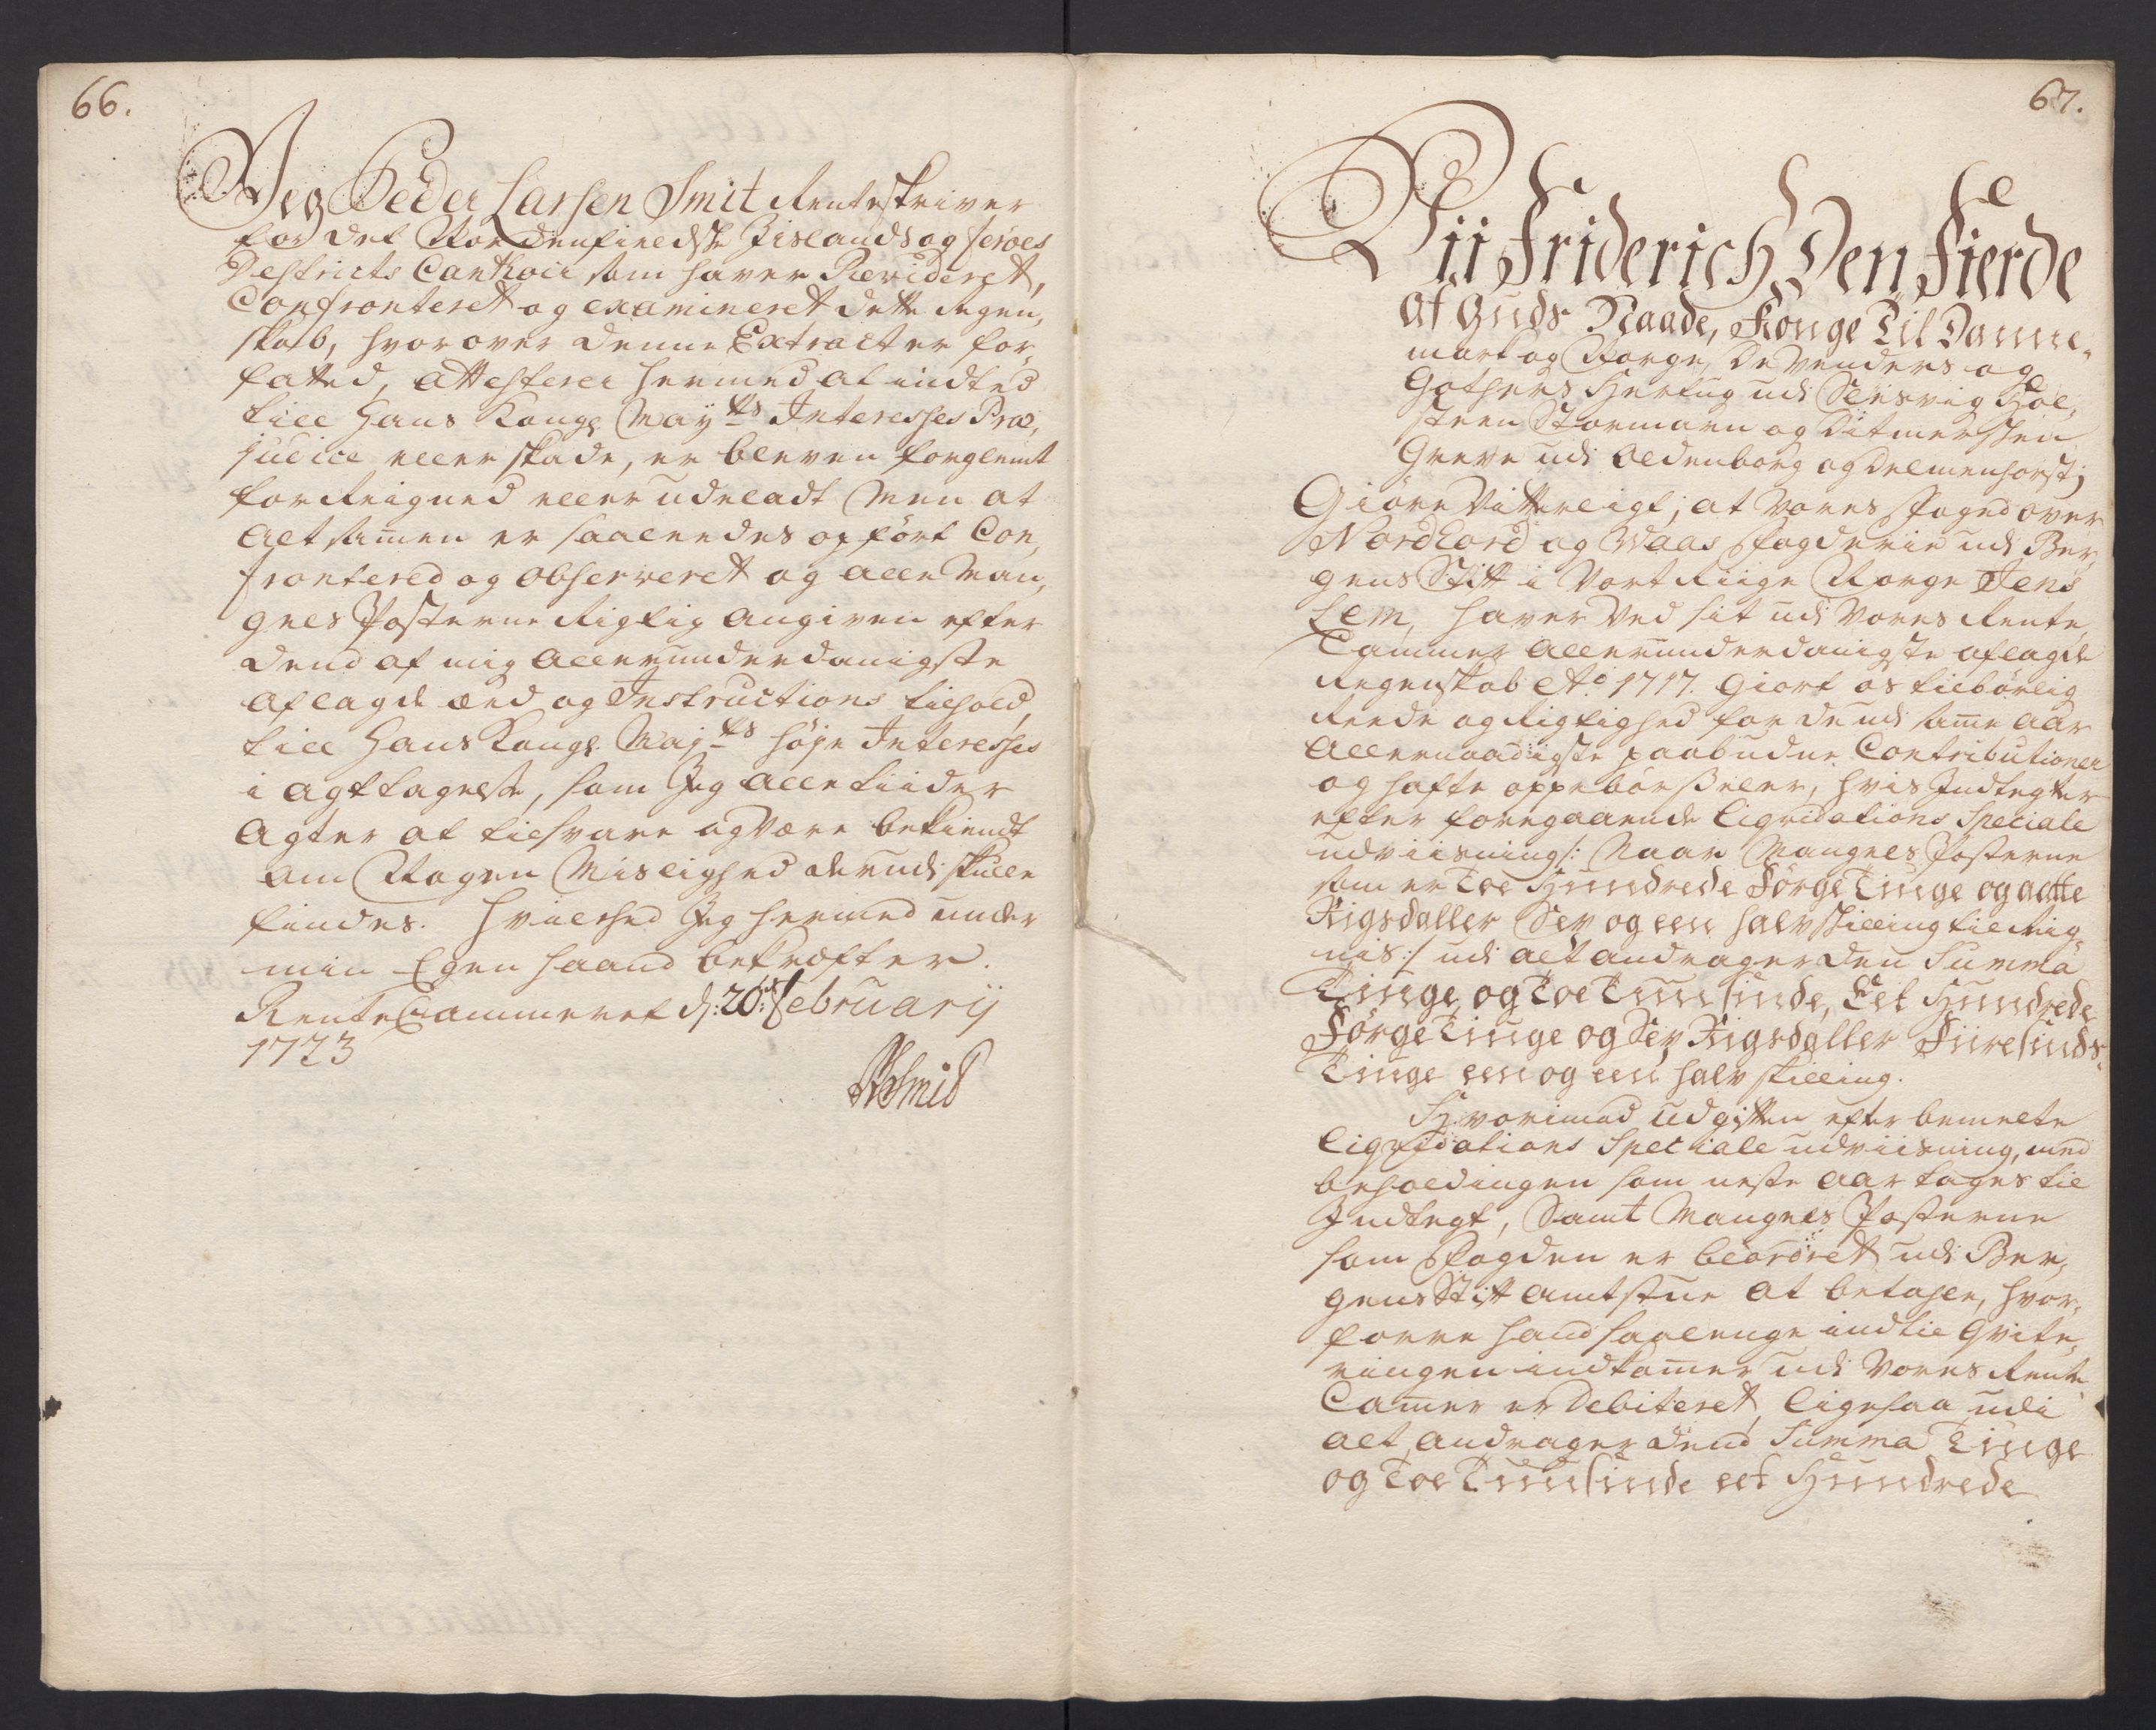 66.
Jeg Peder Larsen Smit Renteskriver
for det Nordenfieldske Iislands og feröes
Destricts Contoir som haver Revideret,
Confronteret og examineret dette Regen,
skab, hvorover denne Extract er for,
fatted, attesterer hermed at indted
till Hans Kongl May:ts Interesses Præ,
judice eller skade, er bleven forglemt
forReigned eller udeladt Men at
alt samen er saaledes opfört Con,
frontered og observeret og alle Man,
gels Posterne Rigtig angiven efter
dend af mig allerunderdanigste
aflagde æed og Instructions tilhold,
till Hans Kongl. Maj:ts höje Interesses
i agttagelse, som Jeg alletiider
agter at tilsvare og være bekiendt
om Nogen Mislighed derudi skulle
findes. hvilched Jeg hermed under
min Egen haand bekræfter.
RenteCammeret d: 20:de februarij
1723
PLSmid
67.
Vii Friderich Den Fierde
af Guds Naade, Konge Til Danne,
mark og Norge, de Venders og
Gothers Hertug udi Slesvig Hol,
steen Stormarn og Ditmersken
Greve udi Oldenborg og Delmenhorst;
Giöre Vitterligt; at Vores Foged over
Nordhord og Waas Fogderie udi Ber,
gens Stift i Vort Riige Norge Jens
Lem, haver Ved sit udi Vores Rente
Cammer allerunderdanigste aflagde
Regenskab Ao 1717. giort os tilbörlig
Reede og Rigtighed for de udi same aar
allernaadigste paabudne Contributioner
og hafte oppebørßeler, hvis Indtegter
efter foregaaende Liqvidations Speciale
udviisning /: Naar Mangels Posterne
som er Toe Hundrede Förgetiuge og aatte
Rigsdaller Sex og een halv skilling til Rig,
nis :/ udi alt andrager den Summa
Tiuge og Toe Tuusinde, Eet Hundrede
Förgetiuge og Sex Rigsdaller Fiiresinds
Tiuge een og een halv skilling.
Hvorimod udgiften efter bemelte
Liqvidations Speciale udviisning, med
beholdingen som neste aar tages til
Indtegt, Samt Mangels Posterne
som Fogden er beordret udi Ber,
gens Stift amtstue at betahle, hvor,
forre hand saalenge indtil Qvite,
ringen indkomer udi Vores Rente
Camer er Debiteret, ligesaa udi
alt andrager dend Summa Tiuge
og Toe Tuusinde eet Hundrede